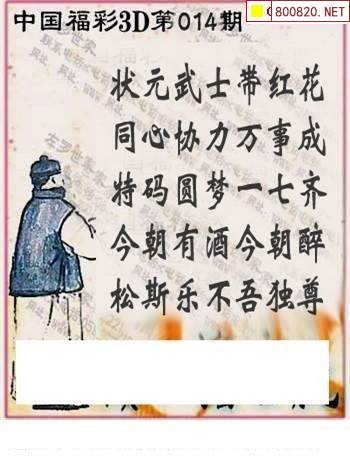 中国福彩3D第014期
800820.NET
状元武士带红花
同心协力万事成
特码圆梦一七齐
今朝有酒今朝醉
松斯乐不吾独尊